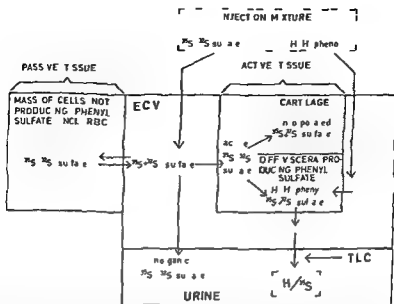 NJECTION MIXTURE
³⁵S ³²S su a e H H pheno
PASS VE T SSUE
ACT VE T SSUE
MASS OF CELLS NOT
PRODUC NG PHENYL
SULFATE NCL RBC
ECV
CART LAGE
n o po a ed
³⁵S ³²S su fa e
ac e
³⁵S ³²S
su a e
O F F V SCERA PRO
DUC NG PHENYL
SULFATE
³⁵S ³²S su fa e
³⁵S ³²S su fa e
H H pheny
³⁵S ³²S sul a e
no gan c
³⁵S ³²S su a e
TLC
H/³⁵S
URINE